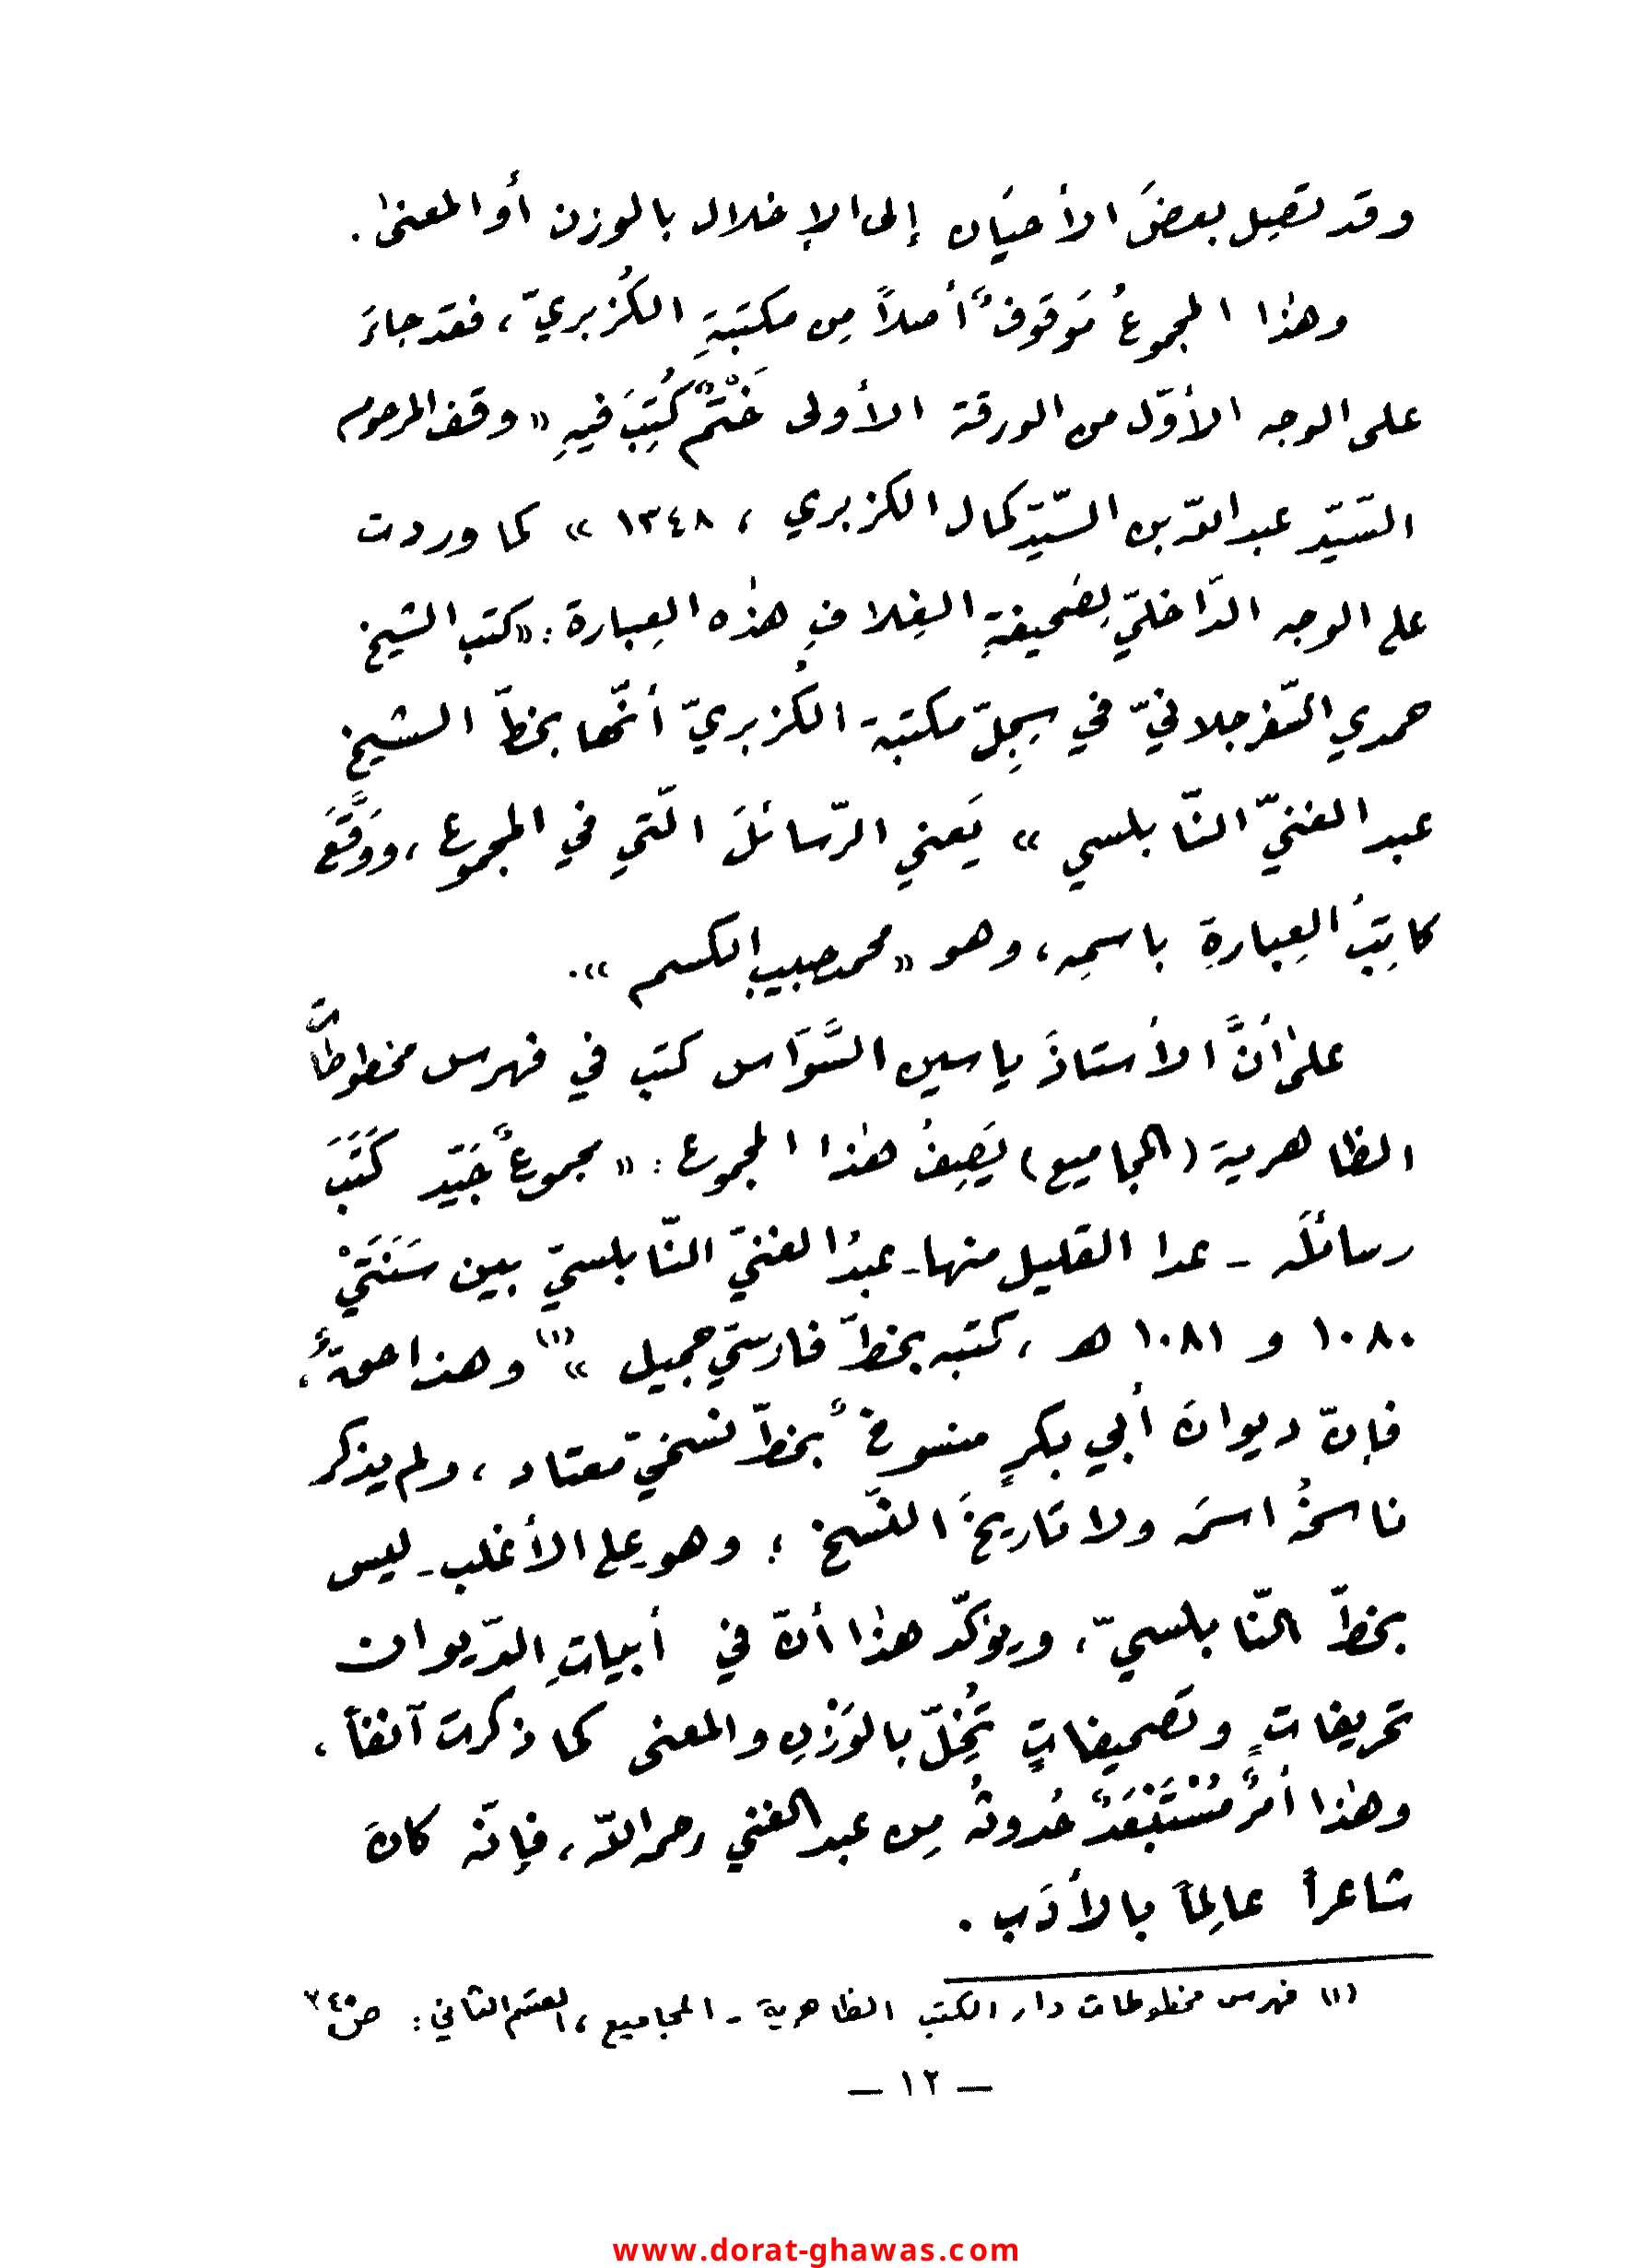 وقد تصِل بعضَ الأحيَان إلى الإخلال بالوزن أو المعنىٰ .
وهٰذا المجموعُ مَوقوفٌ أصلاً مِن مكتَبَةِ الكُزبريّ ، فقد جاءَ
على الوجه الأوّل من الورقة الأولى خَتْمٌ كُتِبَ فيهِ « وقف المرحوم
السّيّد عبد اللّه بن السّيّد كمال الكزبري ، ١٣٤٨ » كما وردت
على الوجه الدَاخليّ لِصَحيفةِ الغِلافِ هذٰه العِبارة : « كتب الشيخ
حمدي السّفرجلانيّ في سِجِلّ مكتبة الكُزبريّ أنّها بخطّ الشيخ
عبد الغنيّ النّابلسي » يَعني الرّسائلَ الّتي في المجموع ، ووَقَّعَ
كاتِبُ العِبارةِ باسمِه ، وهو « محمد حبيب الكسم » .
علىٰ أنَّ الأستاذَ ياسين السَّوَاس كتب في فهرس مخطوطات
الظاهرية ( المجاميع ) يَصِفُ هٰذا المجموع : « مجموعٌ جَيّد كَتَبَ
رسائلَه - عدا القليل منها - عبدُ الغنيّ النّابلسيّ بين سَنَتَيْ
١٠٨٠ و ١٠٨١ هـ ، كتبه بخطّ فارسيّ جميل » (١) وهذا حقٌّ ،
فإنّ ديوانَ أبي بكرٍ منسوخٌ بخطّ نسخيّ معتاد ، ولم يذكر
ناسخُه اسمَه ولا تاريخَ النَّسخ ؛ وهو - على الأغلب - ليس
بخطّ النّابلسيّ ، ويؤكّد هٰذا أنّ في أبياتِ الدّيوان
تحريفاتٍ وتَصحيفاتٍ تُخِلّ بالوَزْنِ والمعنى كما ذكرت آنفاً ،
وهٰذا أمرٌ مُسْتَبْعَدٌ حُدوثُه مِن عبد الغني رحمه اللّه ، فإنّه كانَ
شاعراً عالِماً بالأدَب .
(١) فهرس مخطوطات دار الكتب الظاهرية - المجاميع ، القسم الثاني : ص
— ١٢ —
www.dorat-ghawas.com